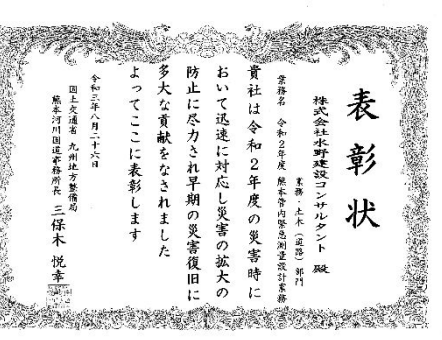 表彰状
株式会社水野建設コンサルタント 殿
業務・土木（道路）部門
業務名 令和2年度 熊本管内緊急測量設計業務
貴社は令和2年度の災害時に
おいて迅速に対応し災害の拡大の
防止に尽力され早期の災害復旧に
多大な貢献をなされました
よってここに表彰します
令和三年八月二十六日
国土交通省 九州地方整備局
熊本河川国道事務所長 三保木 悦幸